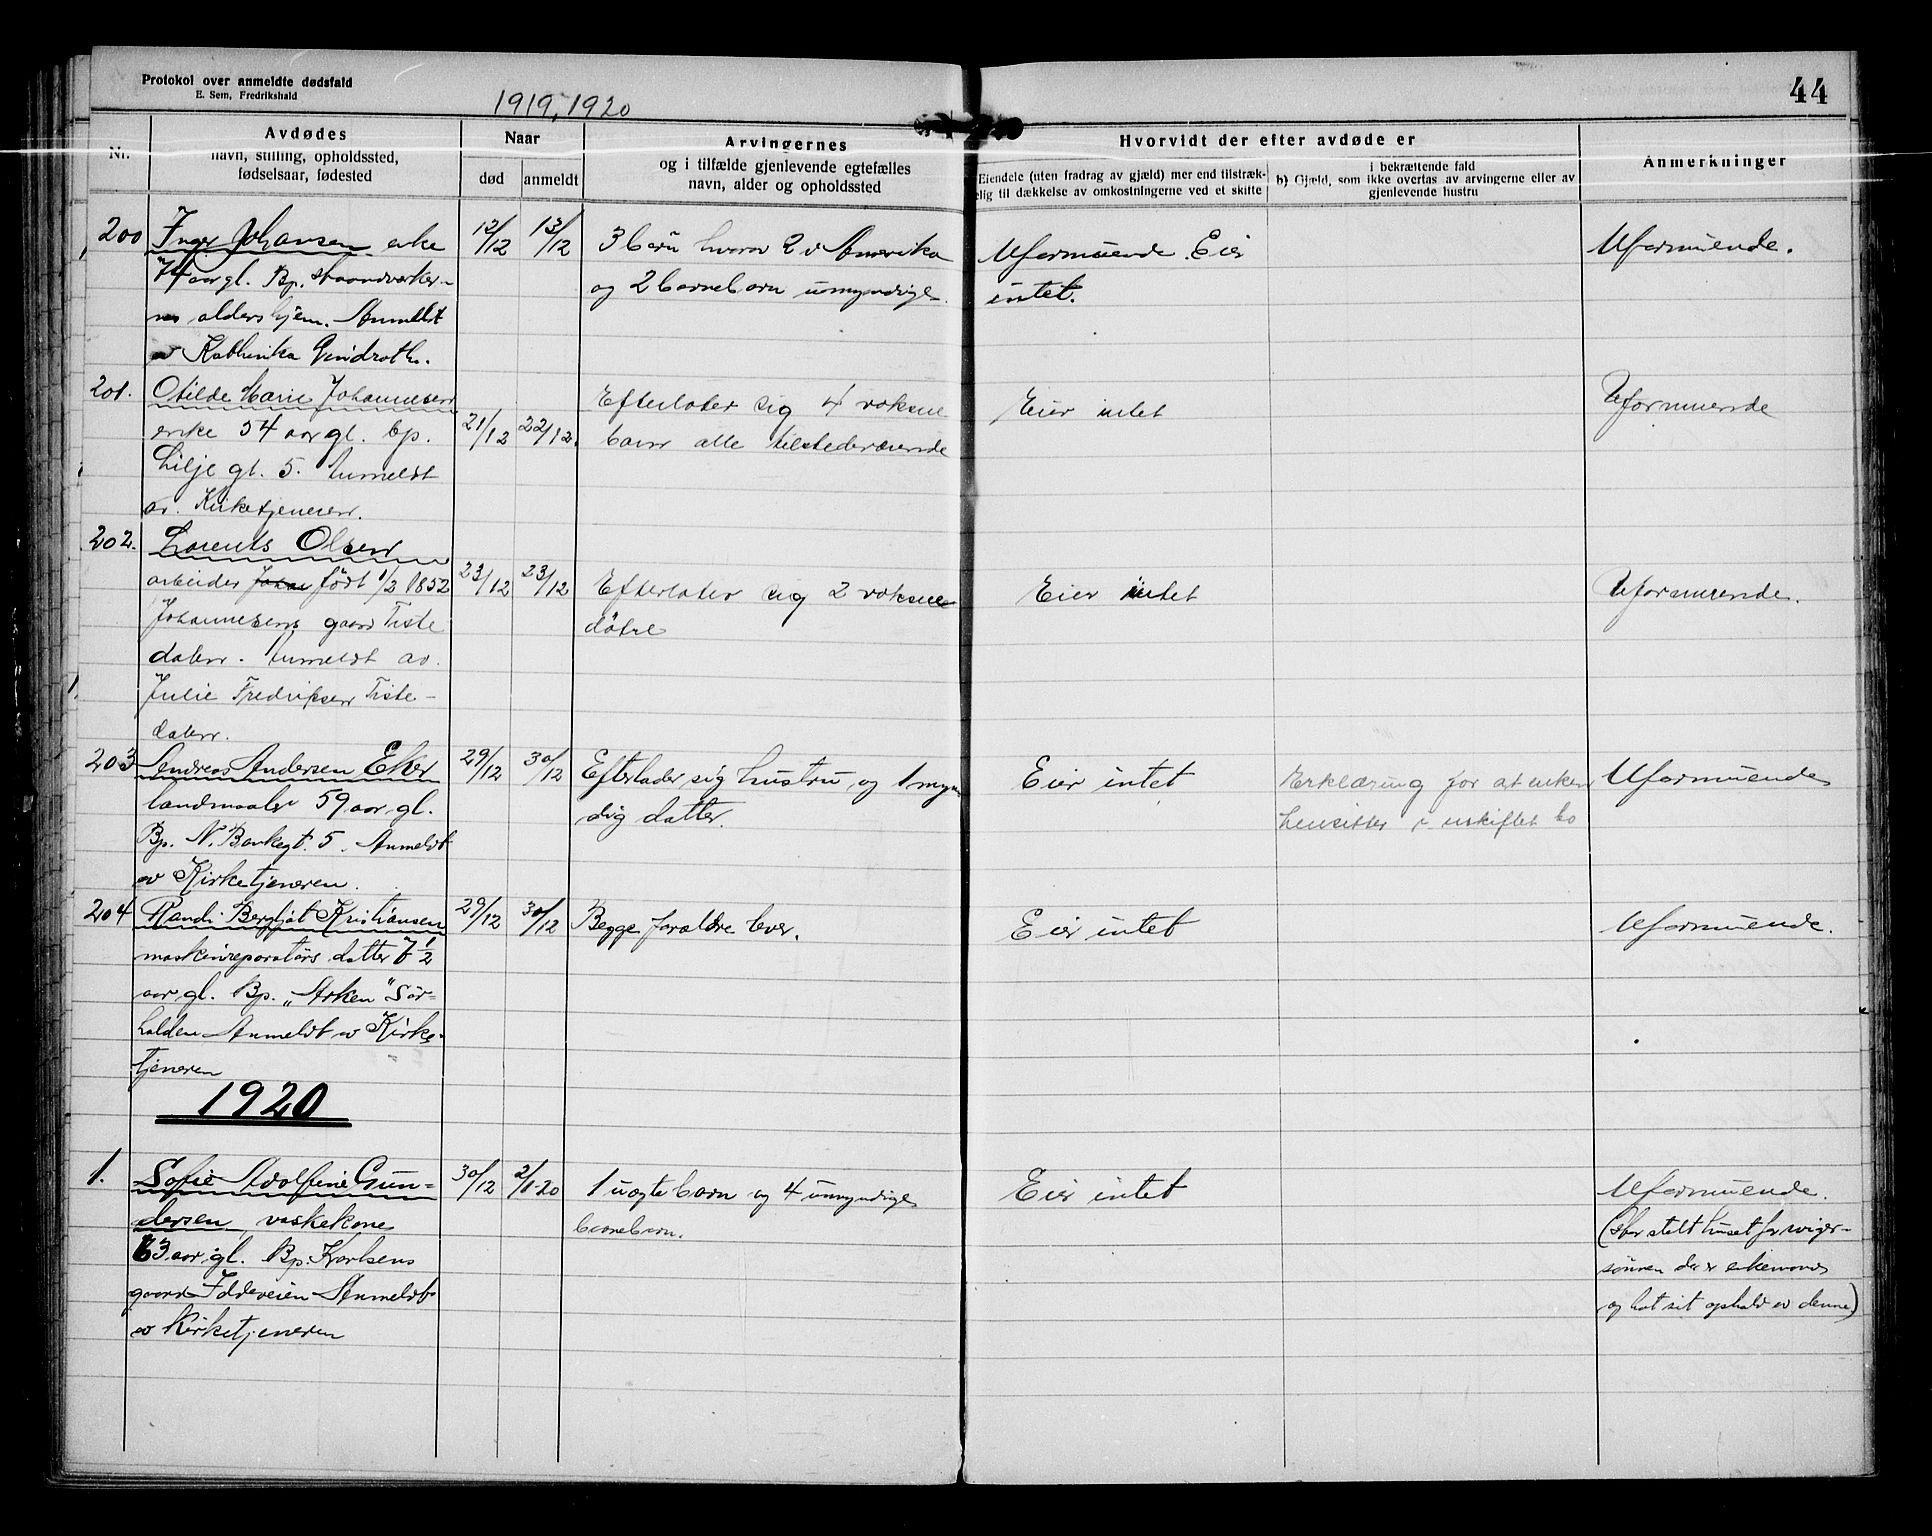 Protokol over anmeldte dødsfald
E. Sem, Fredrikshald
1919, 1920
44
Nr.
Avdødes
navn, stilling, opholdssted,
fødselsaar, fødested
Naar
død
anmeldt
Arvingernes
og i tilfælde gjenlevende egtefælles
navn, alder og opholdssted
Hvorvidt der efter avdøde er
Eiendele (uten fradrag av gjæld) mer end tilstræk-
elig til dækkelse av omkostningerne ved et skifte
i bekræftende fald
b) Gjæld, som ikke overtas av arvingerne eller av
gjenlevende hustru
Anmerkninger
200
Inger Johansen enke
74 aar gl. Bp. Haandverker-
nes aldershjem. Anmeldt
av Kathinka
12/12
13/12
3 barn hvorav 2 i Amerika
og 2 barnebarn umyndige.
Uformuende. Eier
intet.
Uformuende.
201.
Otilde Marie Johannesen
enke 54 aar gl. bp.
Lilje gt. 5. Anmeldt
av. Kirketjeneren.
21/12
22/12.
Efterlater sig 4 voksne
barn alle tilstedeværende
Eier intet
Uformuende
202.
Lorents Olsen
arbeider født 1/2 1852
Johannesens gaard Tiste
dalen. Anmeldt av.
Julie Fredriksen Tiste-
dalen.
23/12
23/12
Efterlater sig 2 voksne
døtre
Eier intet
Uformuende.
203
Andreas Andersen Eker
landmaaler 59 aar gl.
Bp. N. Bankegt. 5. Anmeldt
av Kirketjeneren.
29/12
30/12
Efterlader sig hustru og 1 myn-
dig datter.
Eier intet
Erklæring for at enken
hensitter i uskiftet bo
Uformuende
204
Randi Bergljot Kristiansen
maskinreparatørs datter 7 1/2
aar gl. Bp. „Arken" Sør-
halden Anmeldt av Kirke-
tjeneren
29/12
30/12
Begge forældre lever.
Eier intet
Uformuende.
1920
1.
Sofie Adolfine Gun-
dersen vaskekone
63 aar gl. Bp. Karlsens
gaard Iddeveien Anmeldt
av Kirketjeneren
30/12
2/1-20
1 uegte barn og 4 umyndige
barnebarn.
Eier intet
Uformuende.
(Har stelt huset for sviger-
sønnen der er enkemand
og hat sit ophold av denne)